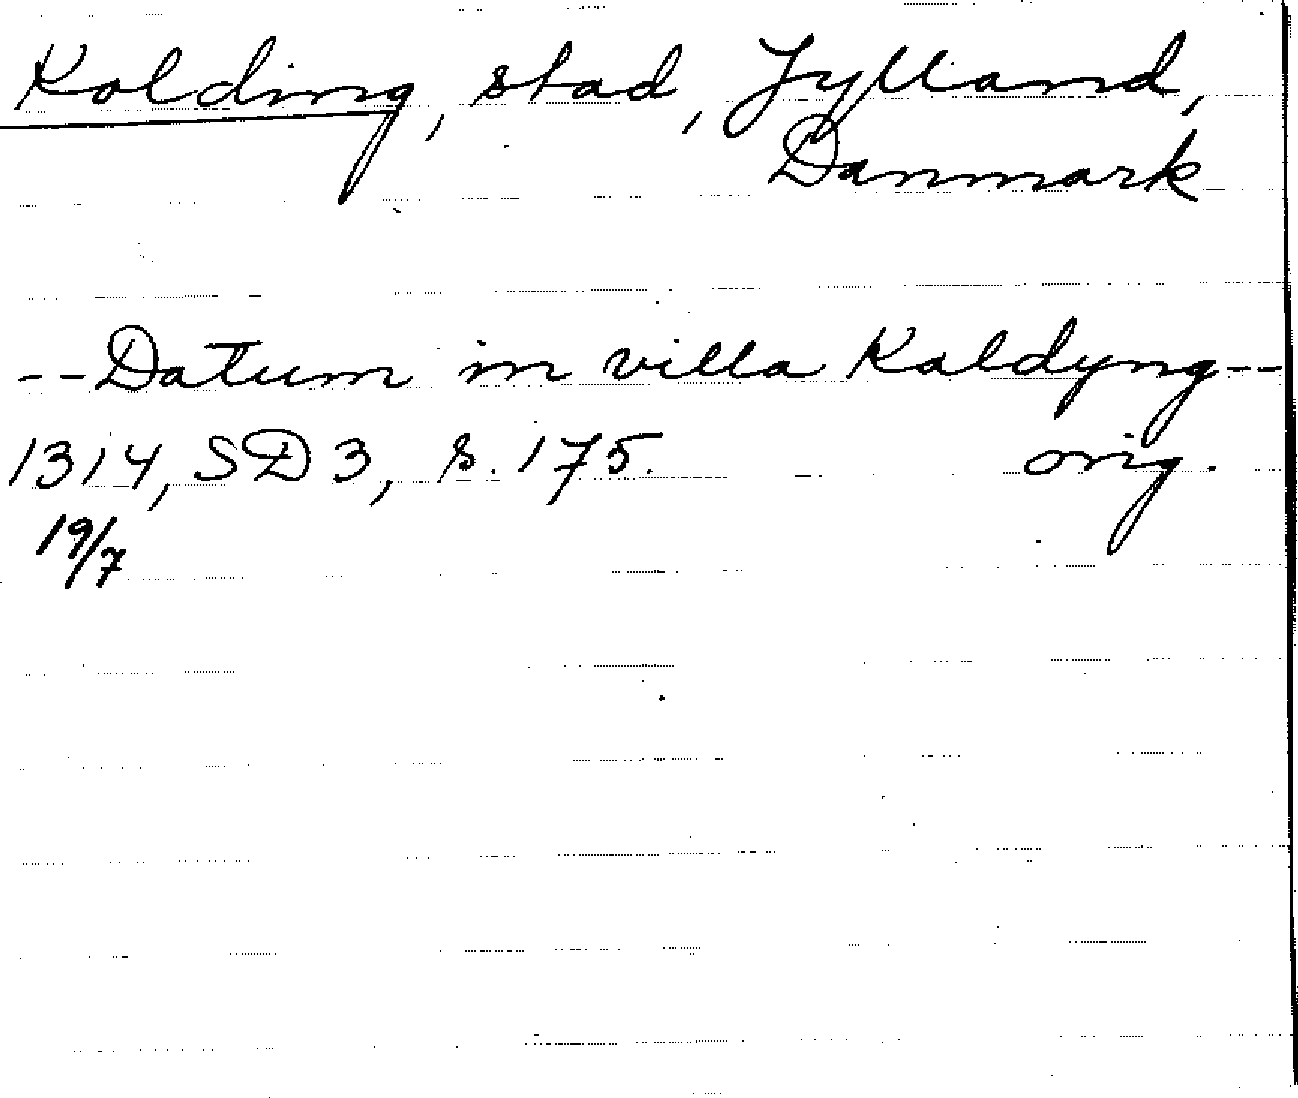 Kolding, stad, Jylland,
Danmark
--Datum in villa Kaldyng--
1314, SD 3, s. 175. orig.
19/7